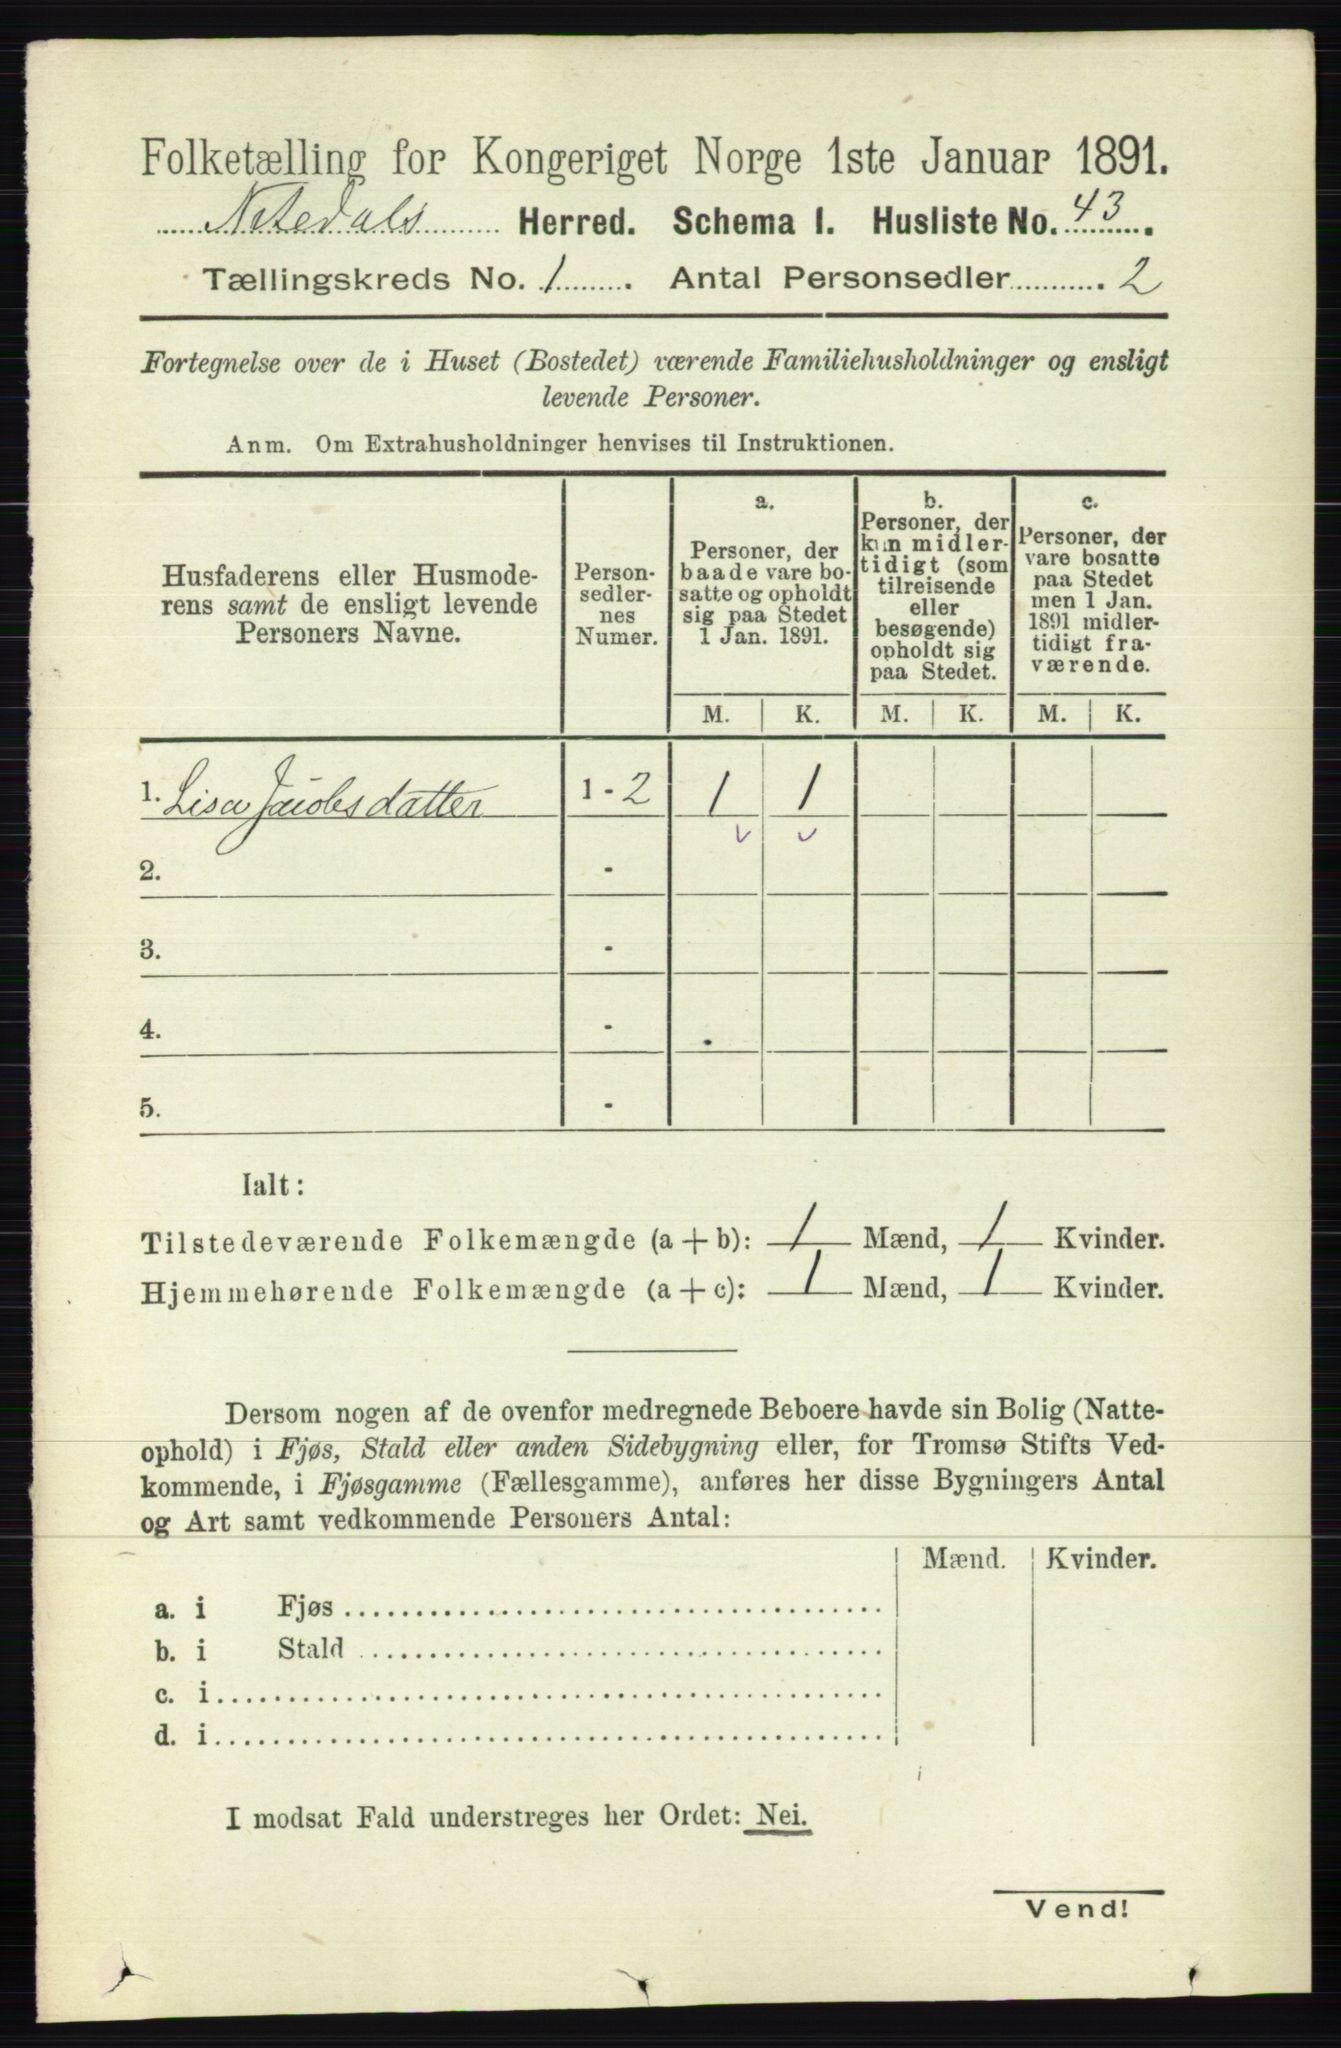 Folketælling for Kongeriget Norge 1ste Januar 1891.
Nitedals Herred. Schema I. Husliste No. 43.
Tællingskreds No. 1. Antal Personsedler 2
Fortegnelse over de i Huset (Bostedet) værende Familiehusholdninger og ensligt
levende Personer.
Anm. Om Extrahusholdninger henvises til Instruktionen.
Husfaderens eller Husmode-
rens samt de ensligt levende
Personers Navne.
Person-
sedler-
nes
Numer.
a.
Personer, der
baade vare bo-
satte og opholdt
sig paa Stedet
1 Jan. 1891.
b.
Personer, der
kun midler-
tidigt (som
tilreisende
eller
besøgende)
opholdt sig
paa Stedet.
c.
Personer, der
vare bosatte
paa Stedet
men 1 Jan.
1891 midler-
tidigt fra-
værende.
M. K. M. K. M. K.
1. Lisa Jacobsdatter 1 - 2 1 1
2. -
3. -
4. -
5. -
Ialt:
Tilstedeværende Folkemængde (a + b): 1 Mænd, 1 Kvinder.
Hjemmehørende Folkemængde (a + c): 1 Mænd, 1 Kvinder.
Dersom nogen af de ovenfor medregnede Beboere havde sin Bolig (Natte-
ophold) i Fjøs, Stald eller anden Sidebygning eller, for Tromsø Stifts Ved-
kommende, i Fjøsgamme (Fællesgamme), anføres her disse Bygningers Antal
og Art samt vedkommende Personers Antal:
Mænd. Kvinder.
a. i Fjøs
b. i Stald
c. i
d. i
I modsat Fald understreges her Ordet: Nei.
Vend!